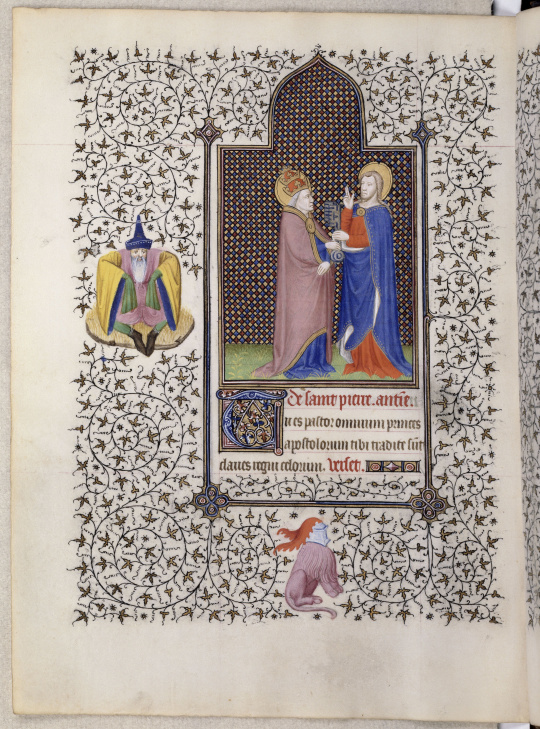 De saint pierre. antiē
Tu es pastor omnium princeps
apostolorum tibi tradite sūt
claues regni celorum. verset.